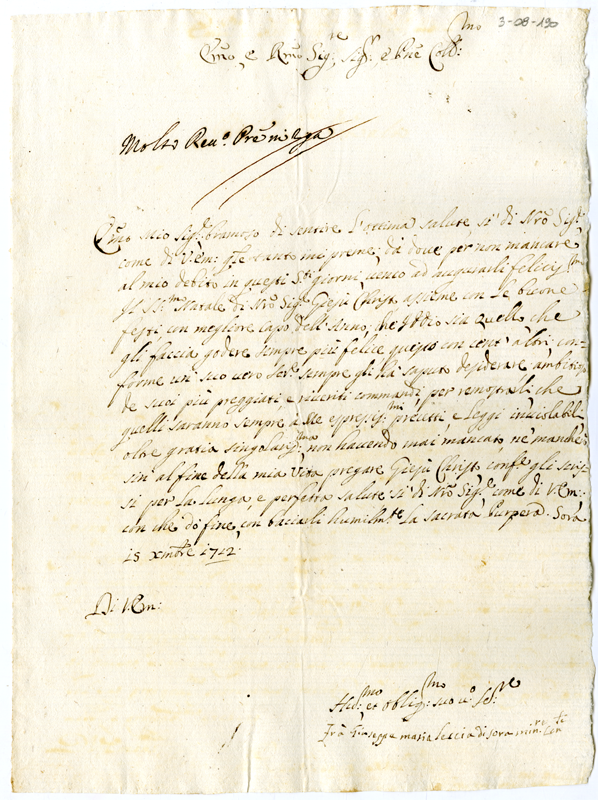 3-08-190
Emo, e Rmo Sig:re Sig.r e Pne Col:mo
Molto Reu.o Pre mio
Emo mio Sig:re bramoso di sentire l'ottima salute, si' di Nro Sig.re
come di V.Em: che tanto mi preme, da doue per non mancare
al mio debito in questi S.ti giorni, uengo ad augurarli felicis.mo
Il SS.mo Natale di Nro Sig.re Giesù Christo assieme con le buone
festi con megliore capo dell'Anno, che Iddio sia quello che
gli faccia godere sempre più felice questo con cent'altri con-
forme un' suo uero Ser.e sempre gli hà saputo desiderare ambitioso
de suoi più preggiati, e riueriti commandi per renostrali che
quelli saranno sempre à me espressis:mi precetti, e leggi inuiolabili
oltre gratia singularis:ma non hauendo mai mancato, ne mancherò
sin' al fine della mia Vita pregare Giesù Christo
si per la lunga, e perfetta salute si' di Nro Sig.re come di V.Em:
con che dò fine, con baciarli humilm.te la sacrata Purpera. Sora
18 xmbre 1712:
Di V.Em:
Hu:mo et oblig:mo suo u.o Se.re
Frà Giuseppe maria Leccia di Sora min:re